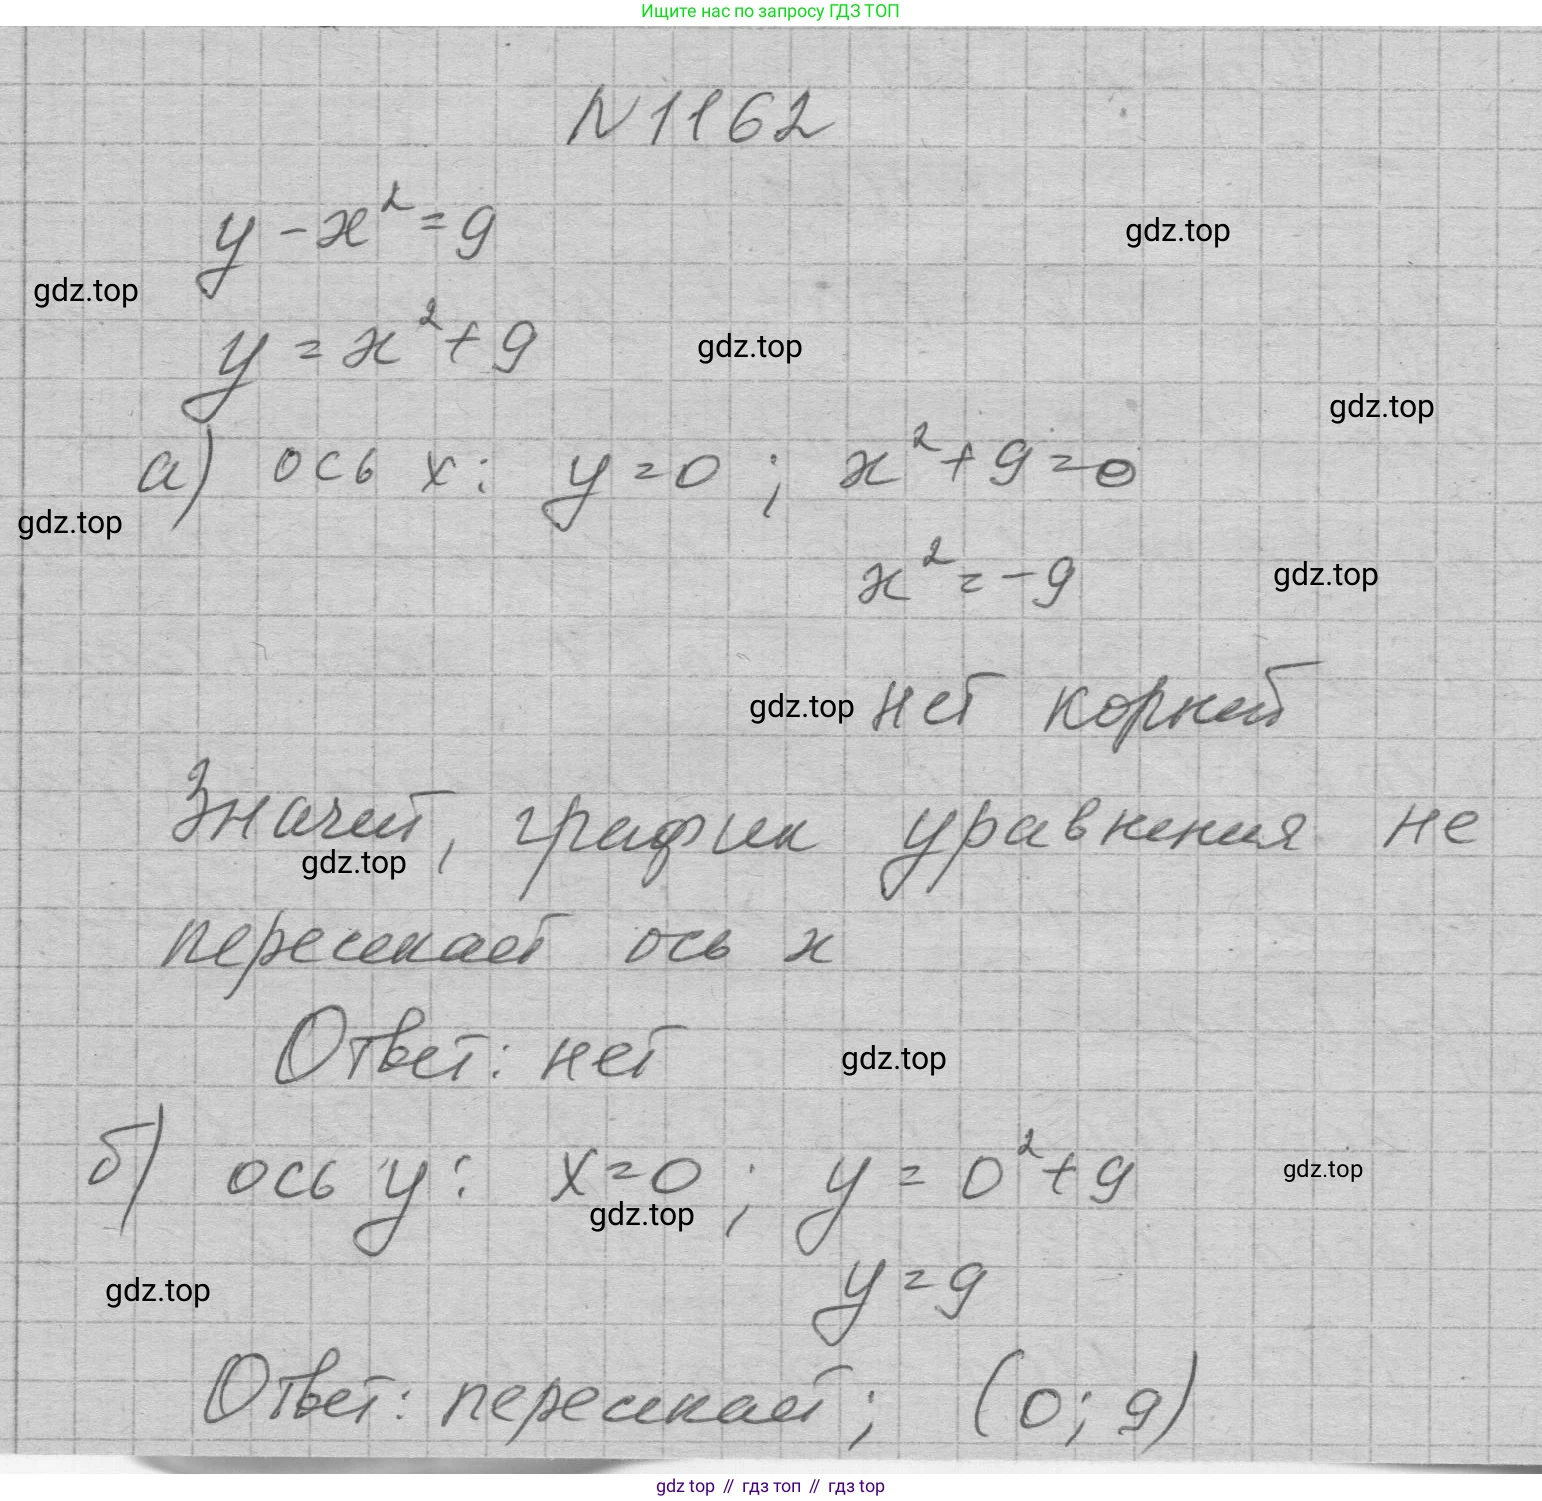 Ищите нас по запросу ГДЗ ТОП
N 1162
y - x² = 9
gdz.top
gdz.top
y = x² + 9
gdz.top
gdz.top
а) ось x: y = 0 ; x² + 9 = 0
gdz.top
x² = -9
gdz.top
gdz.top
нет корней
Значит, график уравнения не
gdz.top
пересекает ось x
Ответ: нет
gdz.top
б) ось y: x = 0 ; y = 0² + 9
gdz.top
gdz.top
y = 9
gdz.top
Ответ: пересекает ; (0; 9)
gdz top // гдз топ // гдз top